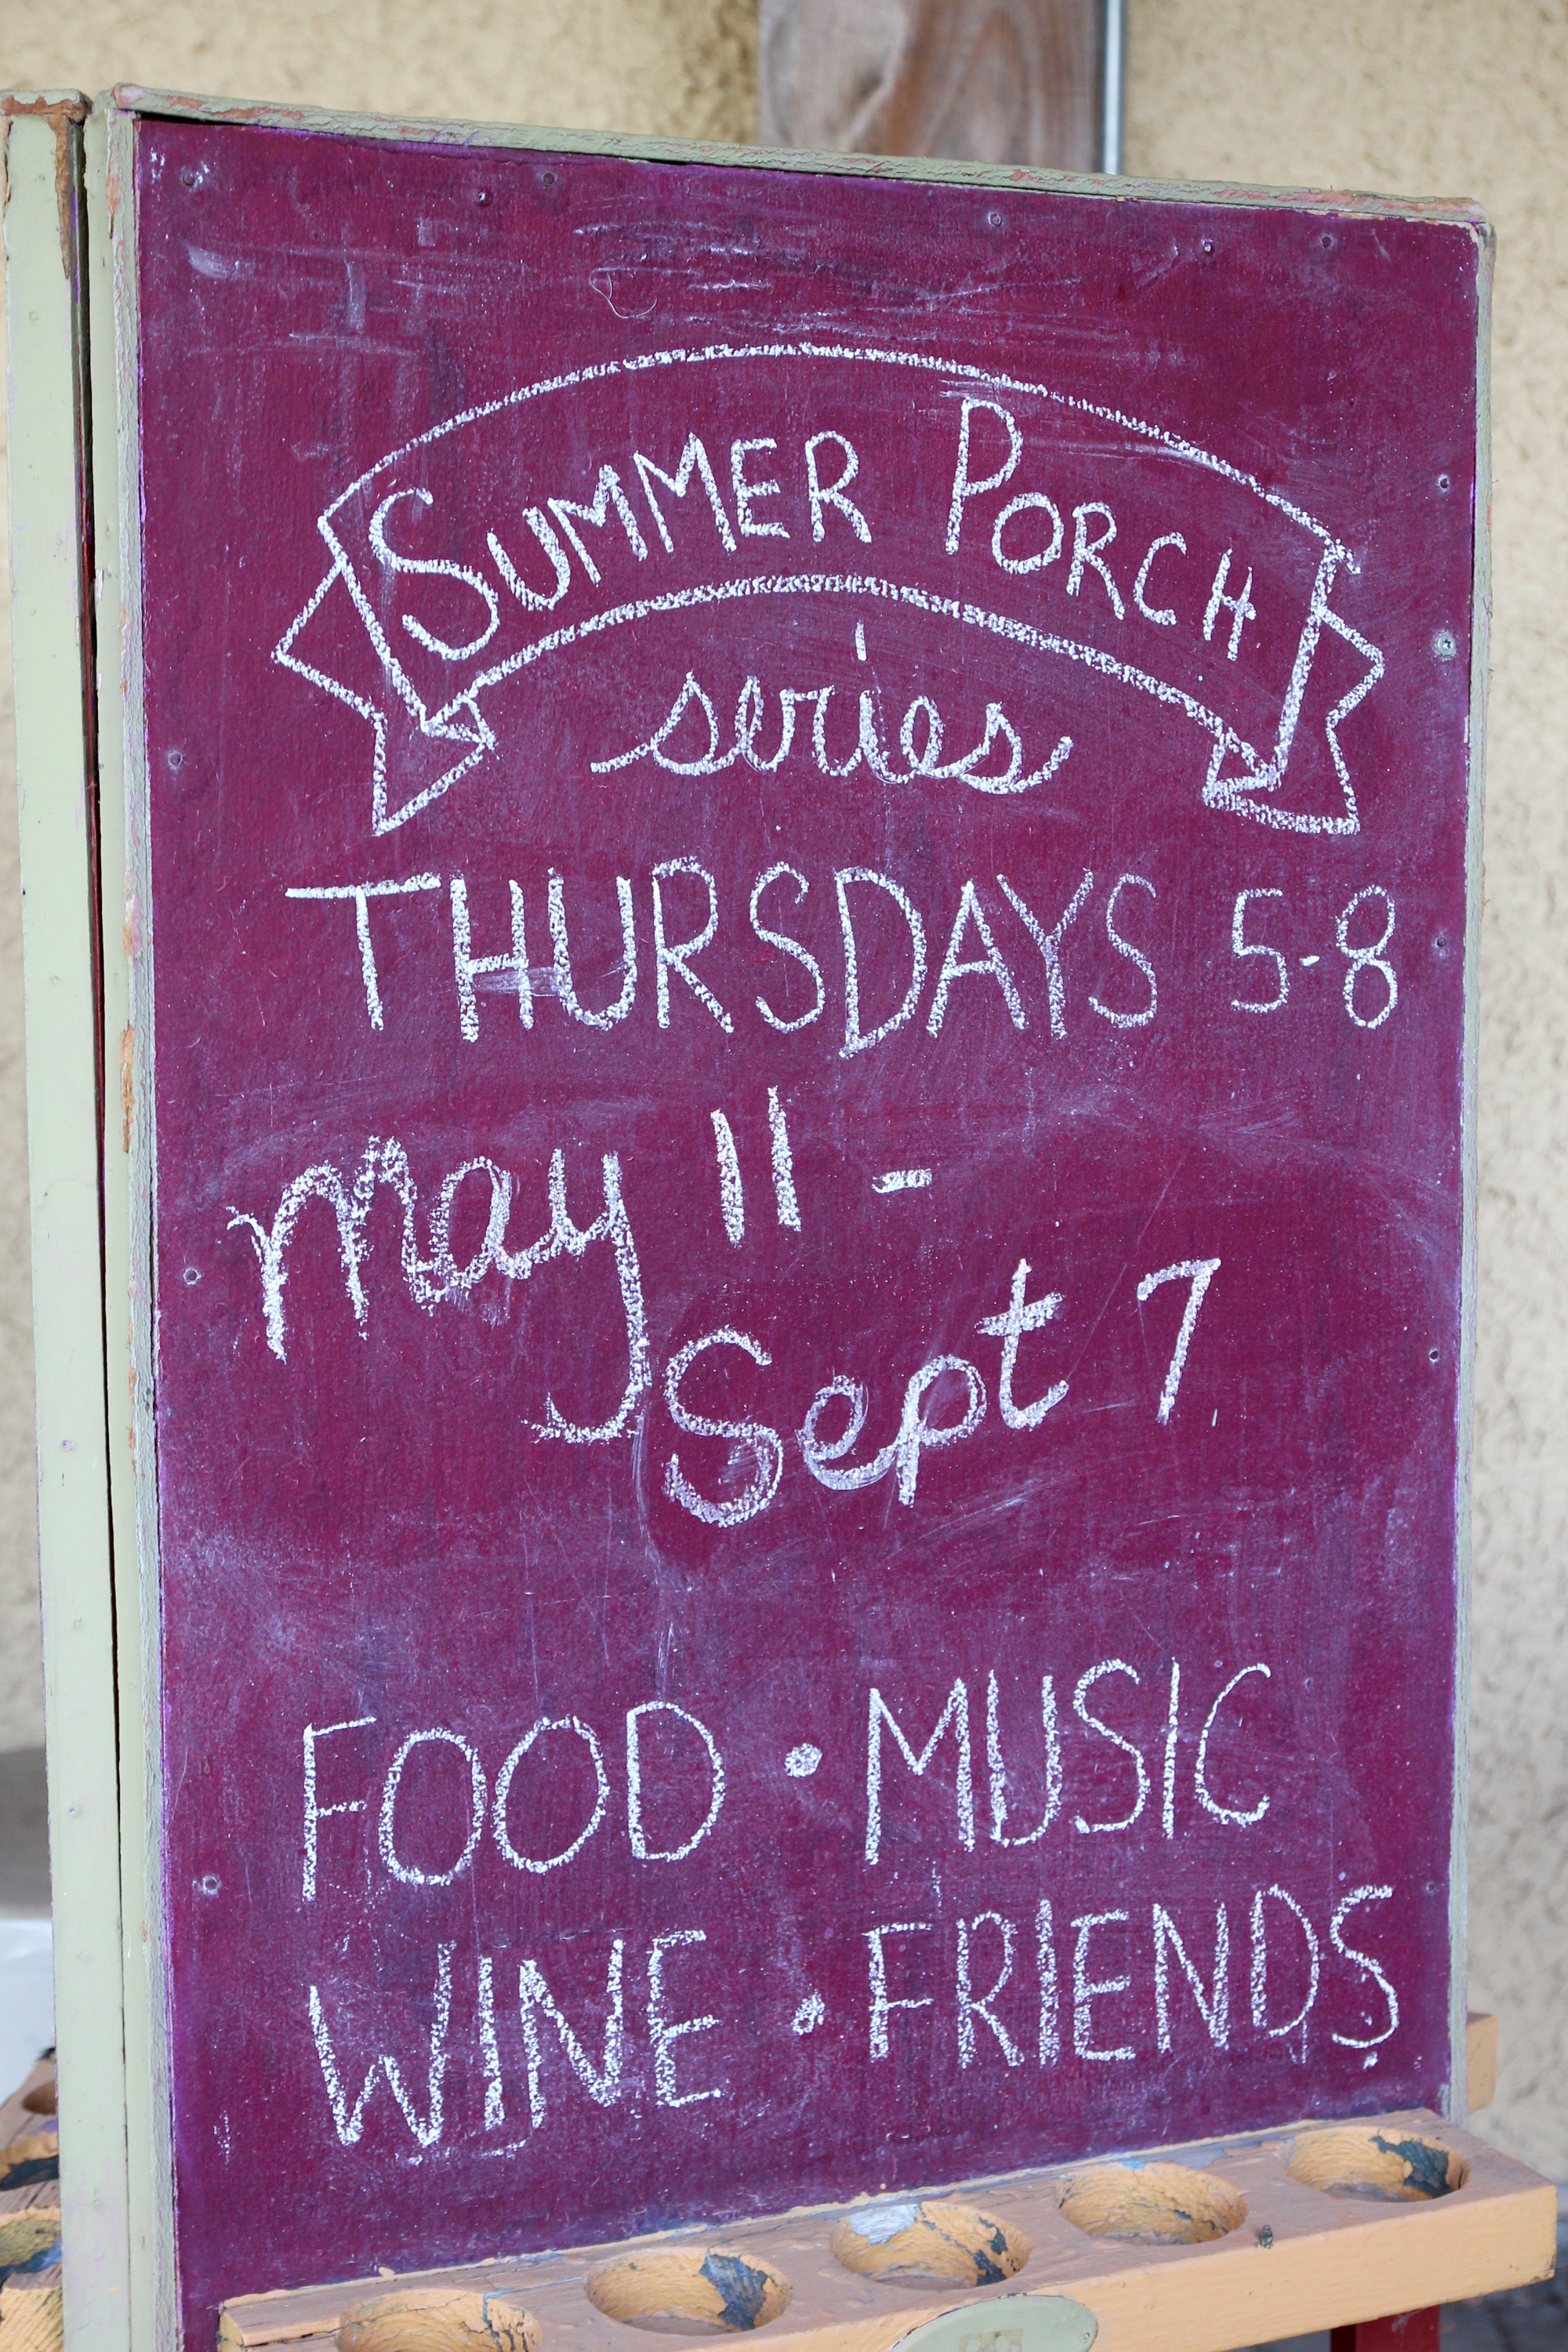 SUMMER PORCH
series
THURSDAYS 5-8
may 11 -
Sept 7
FOOD • MUSIC
WINE • FRIENDS